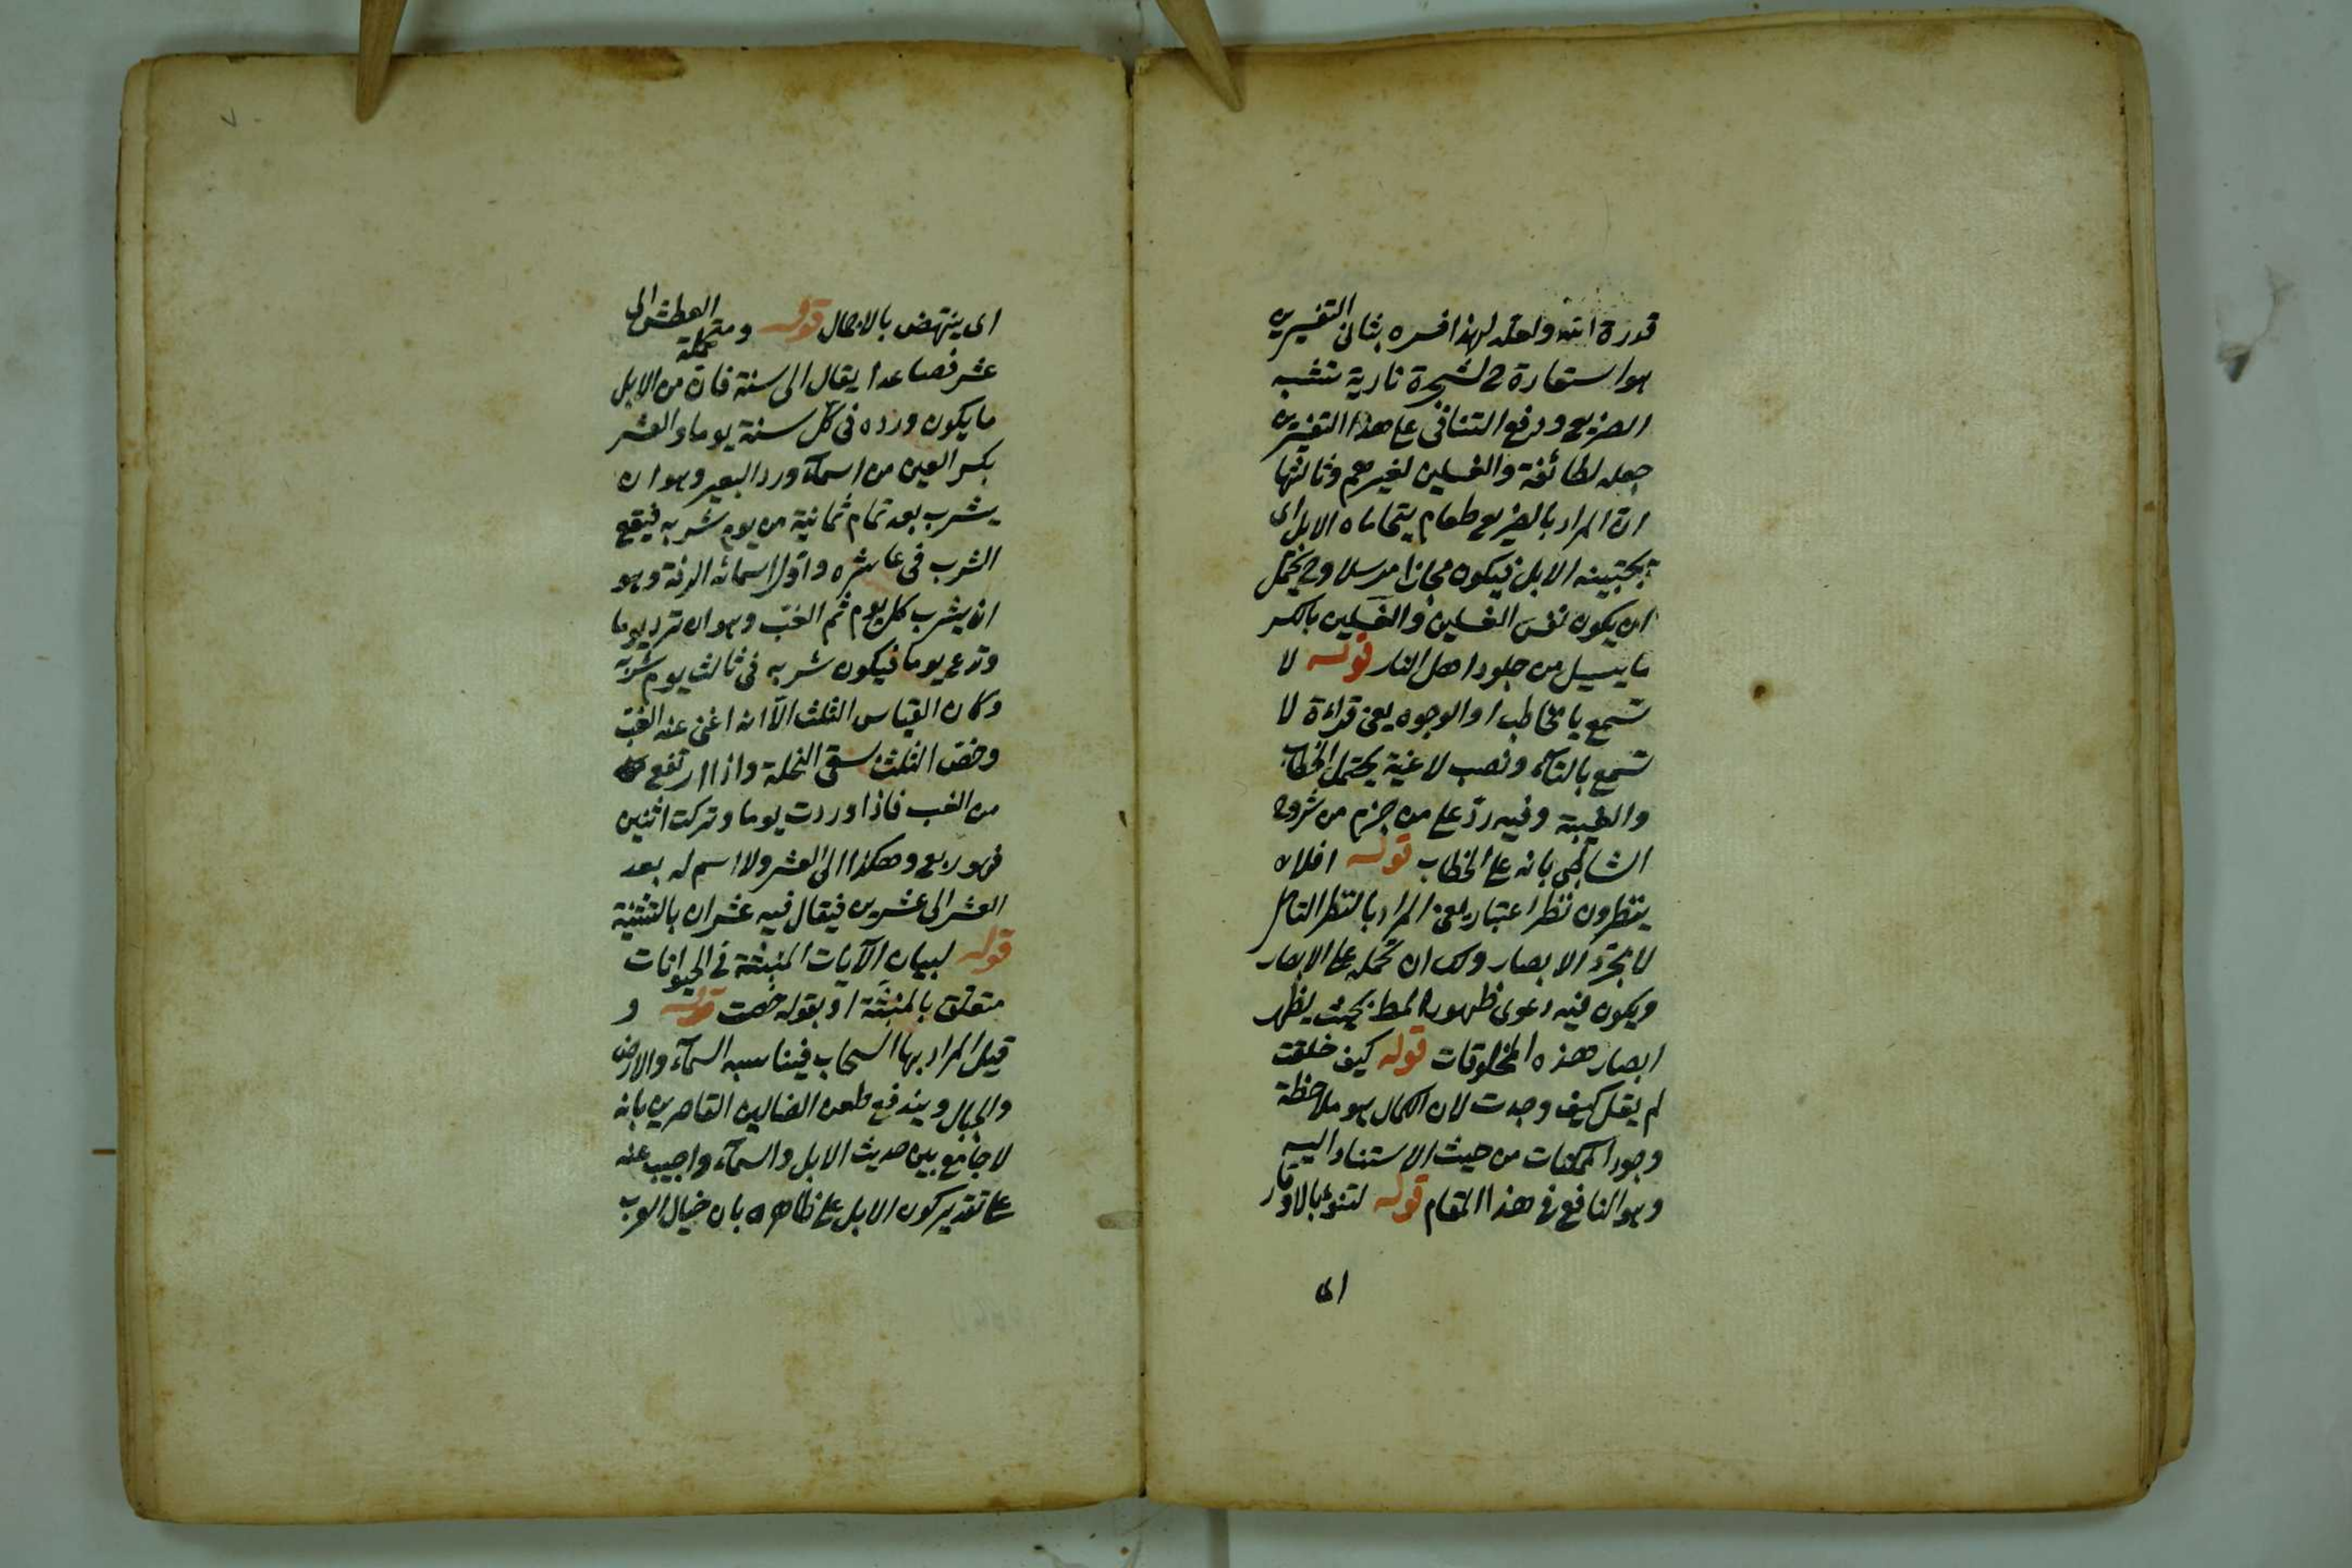 قدرة الله ولعله لهذا فسره بثاني التفسيرين
هو استعارة لشجرة نارية تشبه
الضريع ودفع التنافى على هذا التفسيرين
جعله لطائفة والغسلين لغيرهم وثالثها
ان المراد بالضريع طعام يتحاماه الابل اى
يجتنبه الابل فيكون مجازا مرسلا وح يحتمل
ان يكون نفس الغسلين والغسلين بالكسر
ما يسيل من جلود اهل النار قوله لا
تسمع يا مخاطب او الوجوه يعنى قراءة لا
تسمع بالتآء ونصب لاغية يحتمل الخطاب
والغيبة وفيه ردّ على من جزم من شروح
الشاطبى بانه على الخطاب قوله افلا
ينظرون نظر اعتبار يعنى المراد بالنظر التامل
لا مجرّد الابصار ولك ان تحمله على الابصار
ويكون فيه دعوى ظهور المط بحيث يظهر
ابصار هذه المخلوقات قوله كيف خلقت
لم يقل كيف وجدت لان الكمال هو ملاحظة
وجود الممكنات من حيث الاستناد اليه
وهو النافع فى هذا المقام قوله لتنوء بالاوقار
اى
٧
اى ينتهض بالاحمال قوله ومتحملة العطش الى
عشر فصاعدا يقال الى سنة فانّ من الابل
ما يكون ورده فى كل سنة يوما والعشر
بكسر العين من اسمآء ورد البعير وهو ان
يشرب بعد تمام ثمانية من يوم شربه فيقع
الشرب فى عاشره واوّل اسمائه الرفه وهو
ان يشرب كل يوم ثم الغبّ وهو ان ترد يوما
وتدع يوما فيكون شربه فى ثالث يوم شربه
وكان القياس الثلث الّا انه اغنى عنه الغبّ
وخصّ الثلث بسقى النخلة واذا ارتفع
من الغب فاذا وردت يوما وتركت اثنين
فهو ربع وهكذا الى العشر ولا اسم له بعد
العشر الى عشرين فيقال فيه عشران بالتثنية
قوله لبيان الآيات المنبثّة فى الحيوانات
متعلق بالمنبثّة او بقوله خصت قوله و
قيل المراد بها السحاب فيناسبه السمآء والارض
والجبال ويندفع طعن الضالين القاصرين بانه
لا جامع بين حديث الابل والسمآء واجيب عنه
على تقدير كون الابل على ظاهره بان خيال العرب